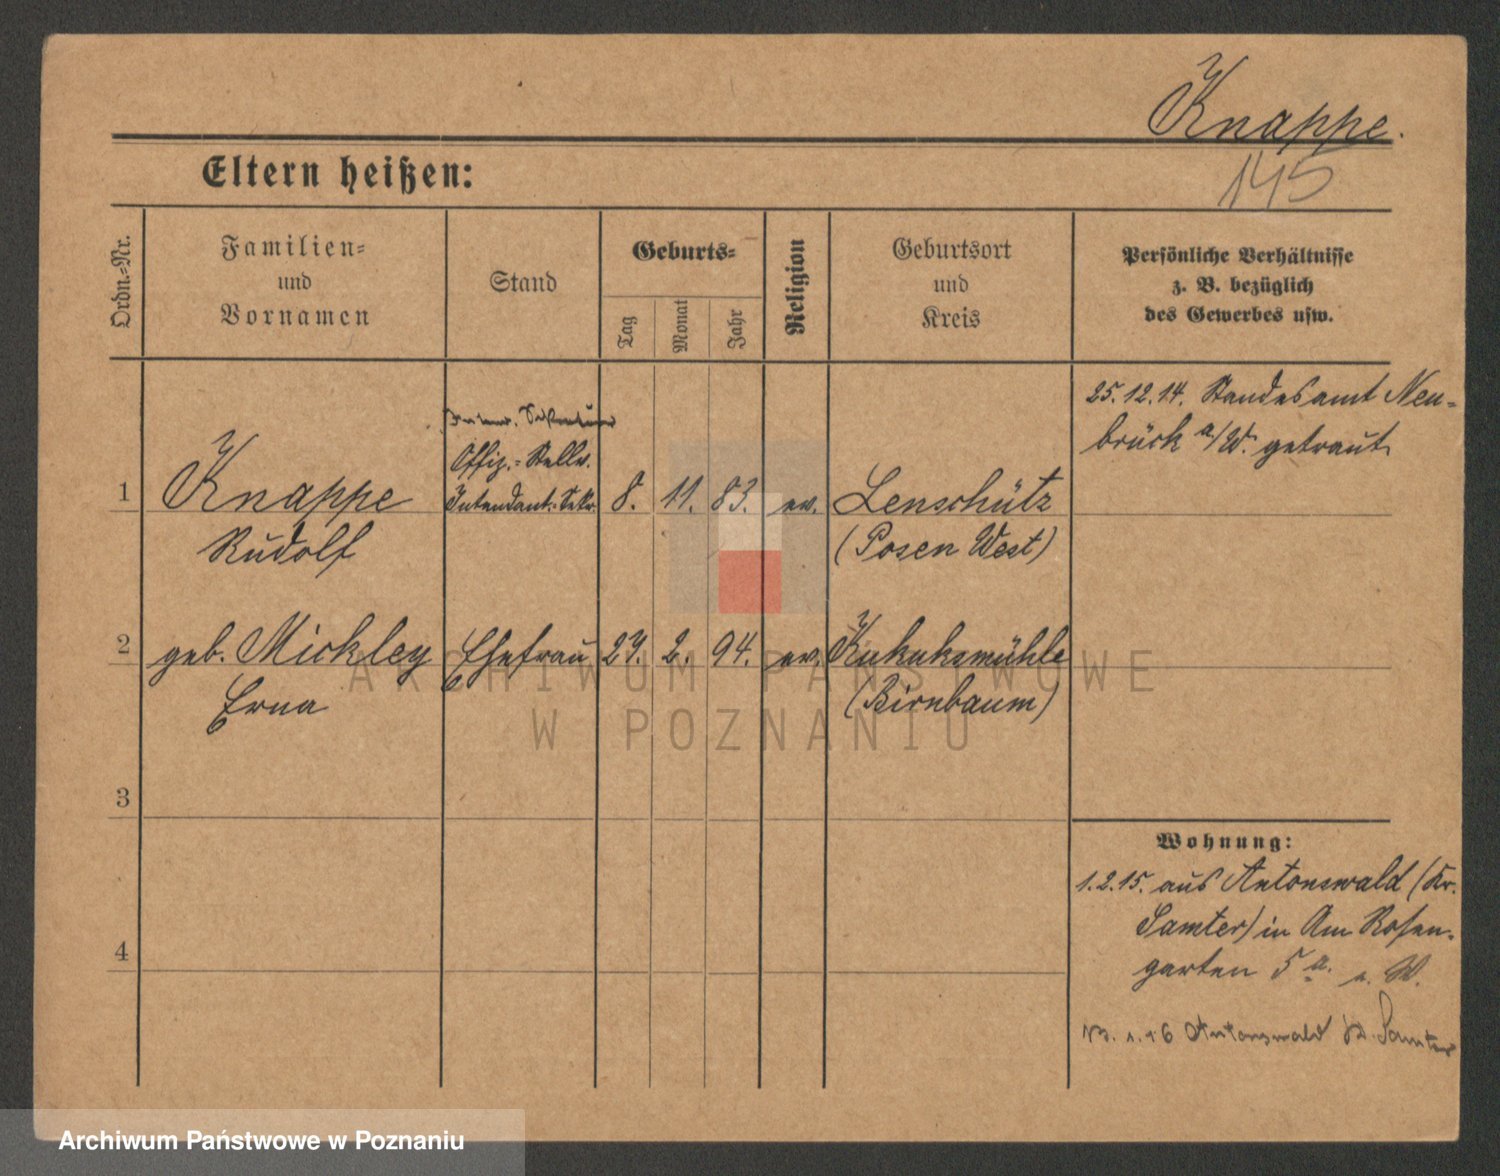 Knappe.
145
Eltern heißen:
Ordn.-Nr.
Familien-
und
Vornamen
Stand
Geburts-
Tag
Monat
Jahr
Religion
Geburtsort
und
Kreis
Persönliche Verhältnisse
z. B. bezüglich
des Gewerbes usw.
25.12.14. Standesamt Neu-
brück a/W. getraut
Offiz.-Stellv.
1 Knappe Intendant.-Sekr. 8. 11. 83. ev. Lenschütz
Rudolf (Posen West)
2 geb. Mickley Ehefrau 27. 2. 94. ev. Kukuksmühle
Erna (Birnbaum)
3
Wohnung:
1.2.15. aus Antonswald (Kr.
Samter) in Am Rosen-
4
garten 5 a.
Antonswald Kr. Samter
ARCHIWUM PAŃSTWOWE
W POZNANIU
Archiwum Państwowe w Poznaniu